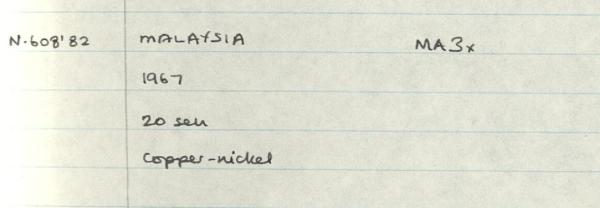 N.608'82 MALAYSIA MA3x
1967
20 sen
Copper-nickel